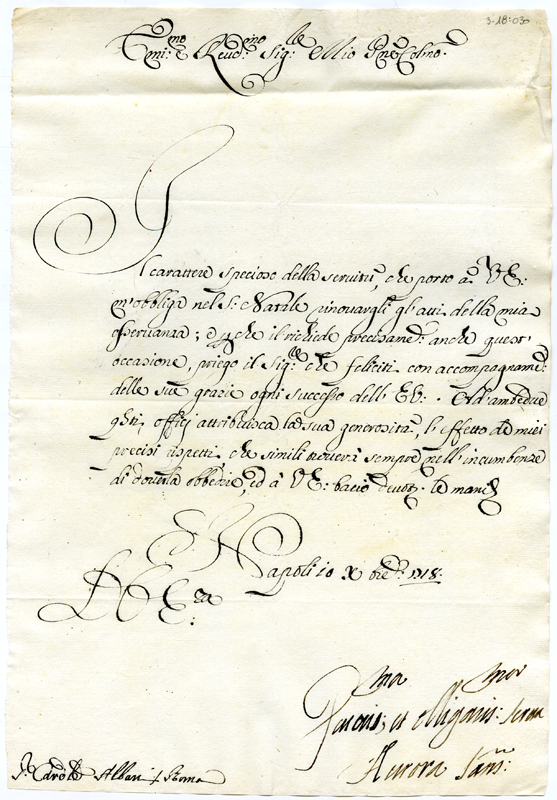 3-18-030
Emi:^mo e Reud:^mo Sig:^re mio P̃ne Colmo
Il carattere specioso della seruitù, che porto à V. E:
m'obliga nel S: Natale rinouargli gl'atti della mia
osseruanza; e p che il richiede precisamẽ: anche quest'
occasione, priego il Sig:^re che feliciti con accompagnamẽ:
delle sue grazie ogni successo dell' E. V: . Ad ambedue
q̃sti officij attribuisca la sua generosità, l'effetto de miei
precisi rispetti che simili trouerà sempre nell'incumbenze
di douerla obbedire, ed à V. E: bacio deuot: le mani
Napoli 10 Xbrẽ: 1718:
D. V. E:^za
Deuotis:^ma et obligatis: serua
Aurora San:
S: Card:^le Albani / Roma